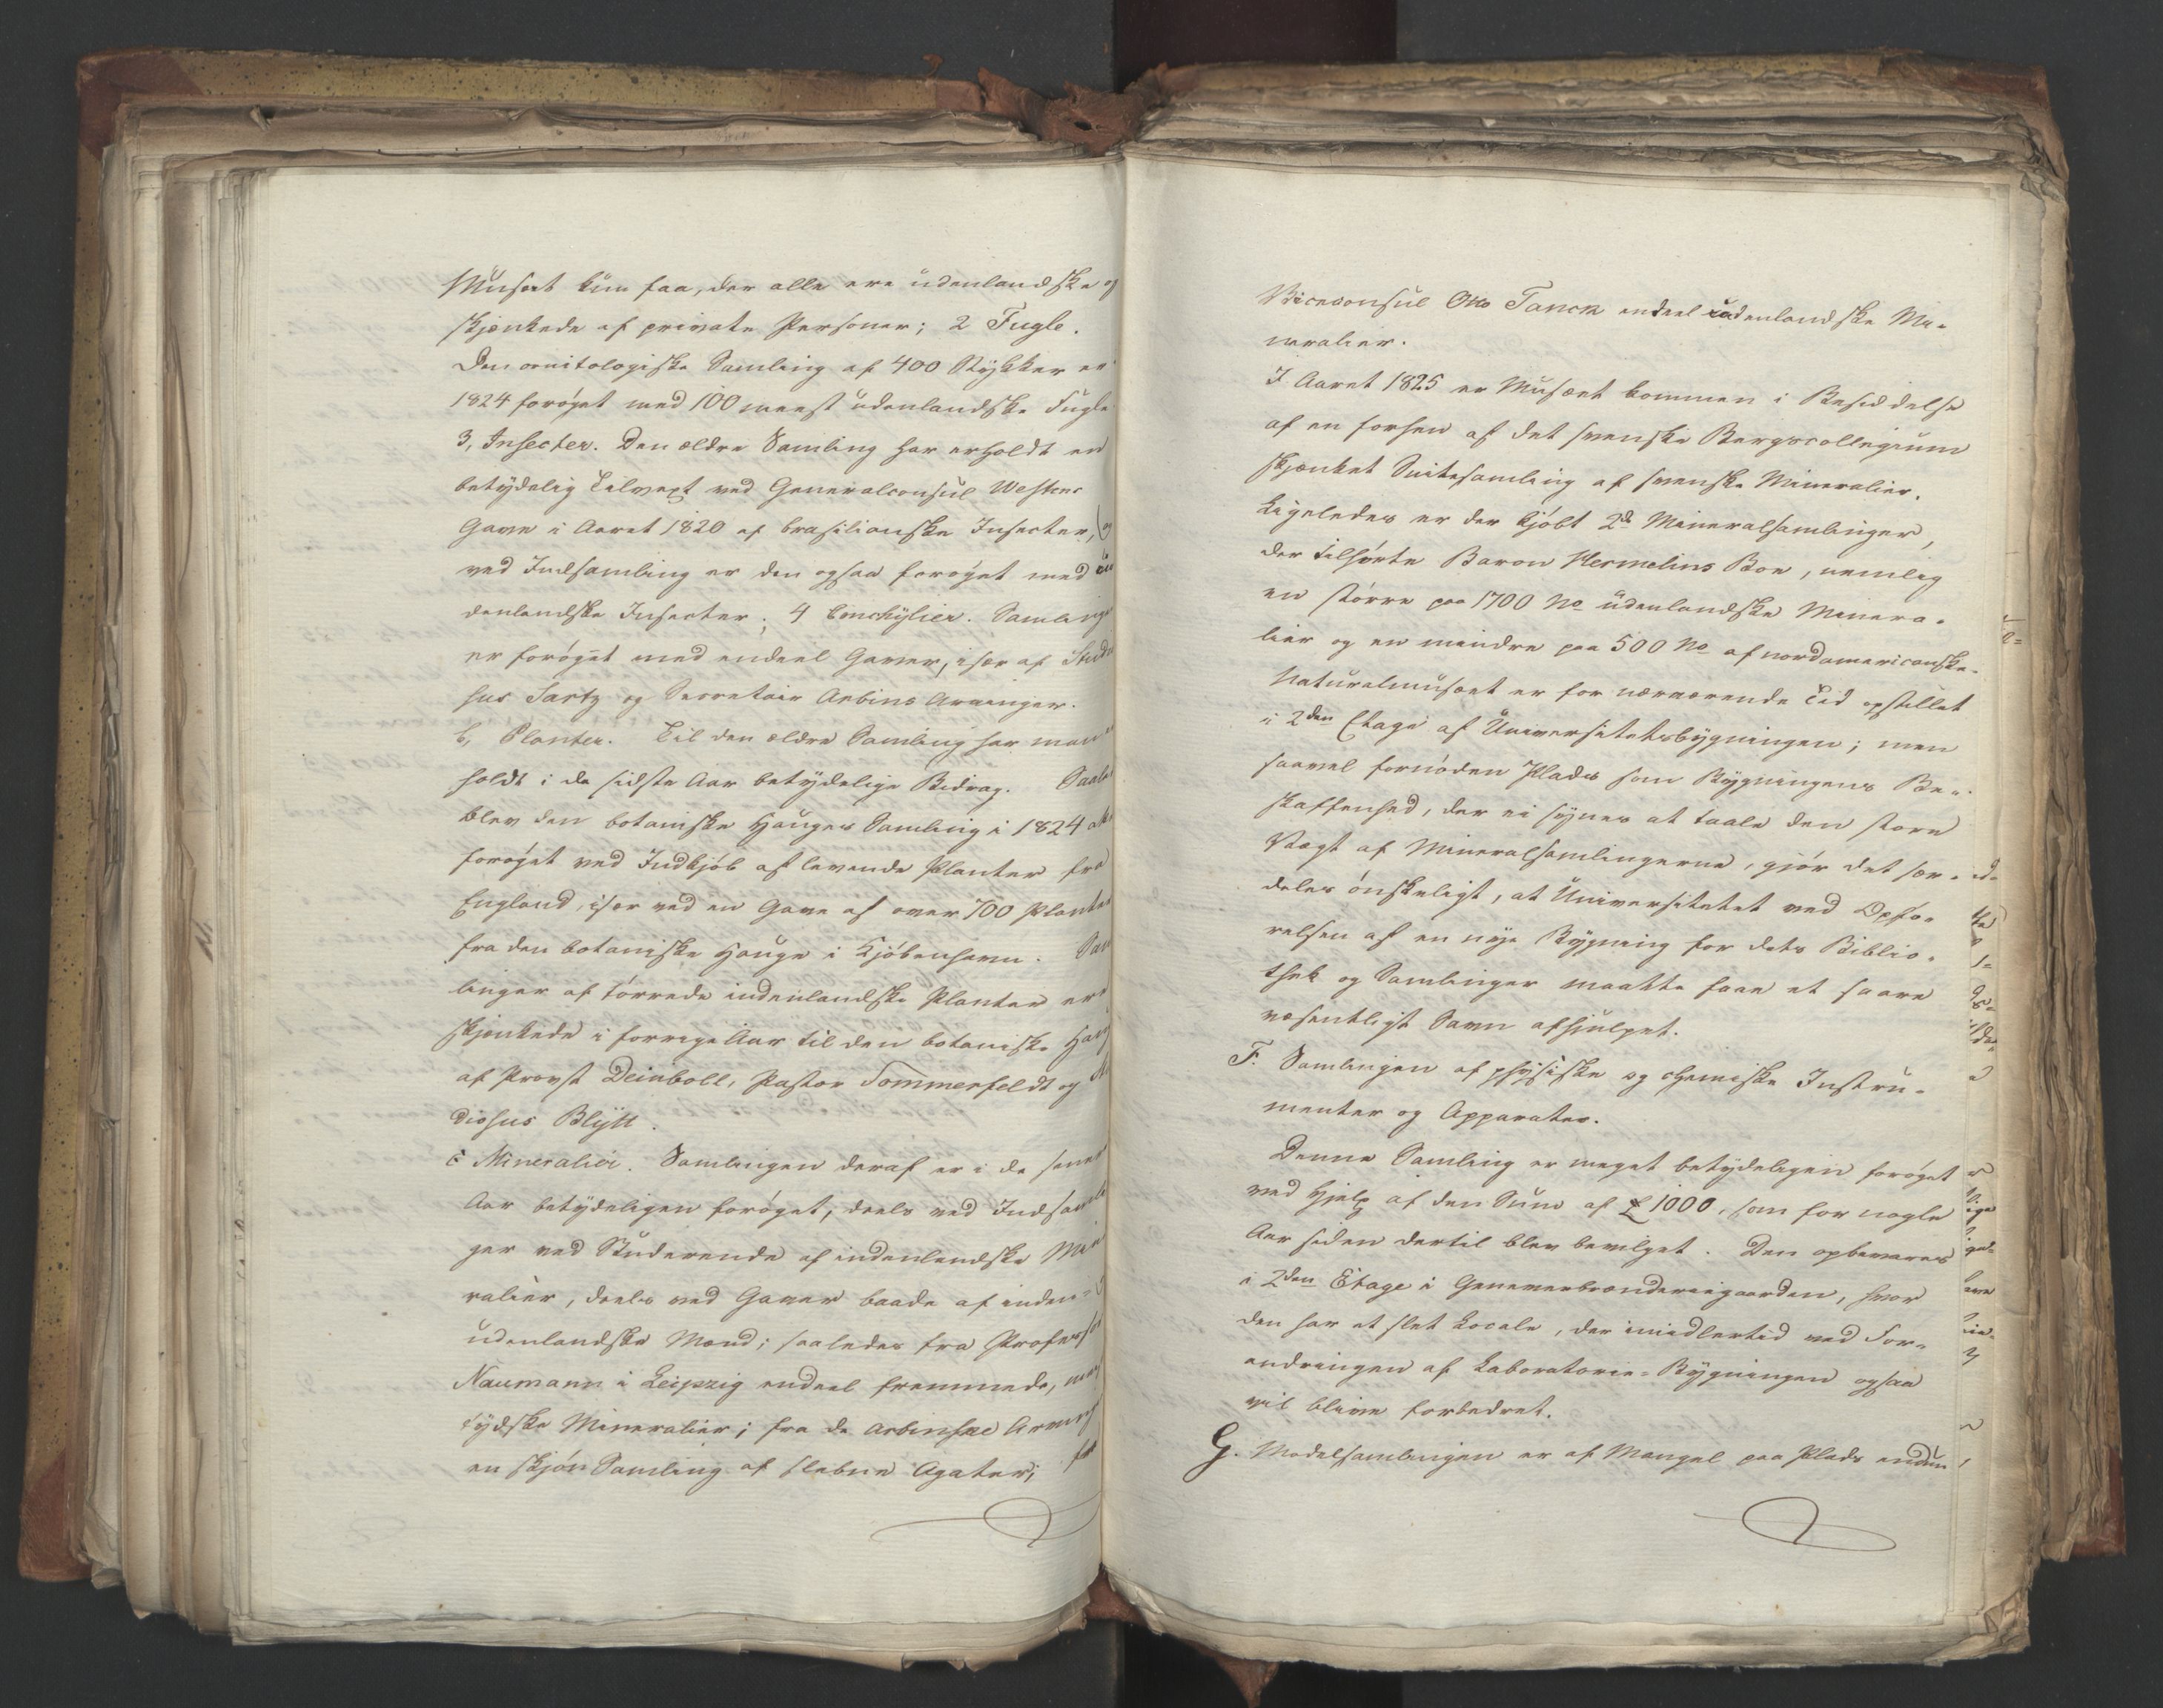 Musæet kun faa, der alle ere udenlandske og
skjænkede af private Personer; 2 Fugle.
Den ornitologiske Samling af 400 Stykker er
1824 forøget med 100 meest udenlandske Fugle
3, Insecter. Den ældre Samling har erholdt en
betydelig Tilvext ved Generalconsul Westins
Gave i Aaret 1820 af brasilianske Insecter, og
ved Indsamling er den ogsaa forøget med in
denlandske Insecter; 4 Conchylier. Samling
er forøget med endeel Gaver, især af Studio
sus Sartz og Secretair Arbins Arvinger.
b, Planter. Til den ældre Samling har man
holdt i de sidste Aar betydelige Bidrag. Saale
blev den botaniske Hauges Samling i 1824
forøget ved Indkjøb af levende Planter fra
England, især ved en Gave af over 700 Planter
fra den botaniske Hauge i Kjøbenhavn. Sam
linger af tørrede indenlandske Planter ere
skjænkede i forrige Aar til den botaniske Haug
af Provst Deinboll, Pastor Sommerfeldt og
diosus Blytt.
c Mineralier. Samlingen deraf er i de sener
Aar betydeligen forøget, deels ved Indsamlin
ger ved Studerende af indenlandske Mine
ralier, deels ved Gaver baade af inden-
udenlandske Mænd; saaledes fra Professor
Naumann i Leipzig endeel fremmede,
tydske Mineralier; fra de Arbinske Arving
en skjøn Samling af slebne Agater; fra
Viceconsul Otto Tanck endeel udenlandske Mi-
neralier.
I Aaret 1825 er Musæet kommen i Besiddelse
af en forhen af det svenske Bergscollegium
skjænket Suitesamling af svenske Mineralier.
Ligeledes er der kjøbt 2de Mineralsamlinger,
der tilhørte Baron Hermelins Boe, nemlig
en større paa 1700 No udenlandske Minera-
lier og en mindre paa 500 No af nordamericanske.
Naturalmusæet er for nærværende Tid opstillet
i 2den Etage af Universitetsbygningen; men
saavel fornøden Plads som Bygningens Be-
skaffenhed, der ei synes at taale den store
Vægt af Mineralsamlingerne, gjør det sær-
deles ønskeligt, at Universitetet ved Opfø-
relsen af en nye Bygning for dets Biblio-
thek og Samlinger maatte faae et saare
væsentligt Savn afhjulpet.
F. Samlingen af physiske og chemiske Instru-
menter og Apparater.
Denne Samling er meget betydeligen forøget
ved Hjelp af den Sum af £ 1000, som for nogle
Aar siden dertil blev bevilget. Den opbevares
i 2den Etage i Geneverbrænderiegaarden, hvor
den har et slet Locale, der imidlertid ved For-
andringen af Laboratorie-Bygningen ogsaa
vil blive forbedret.
G. Modelsamlingen er af Mangel paa Plads endnu